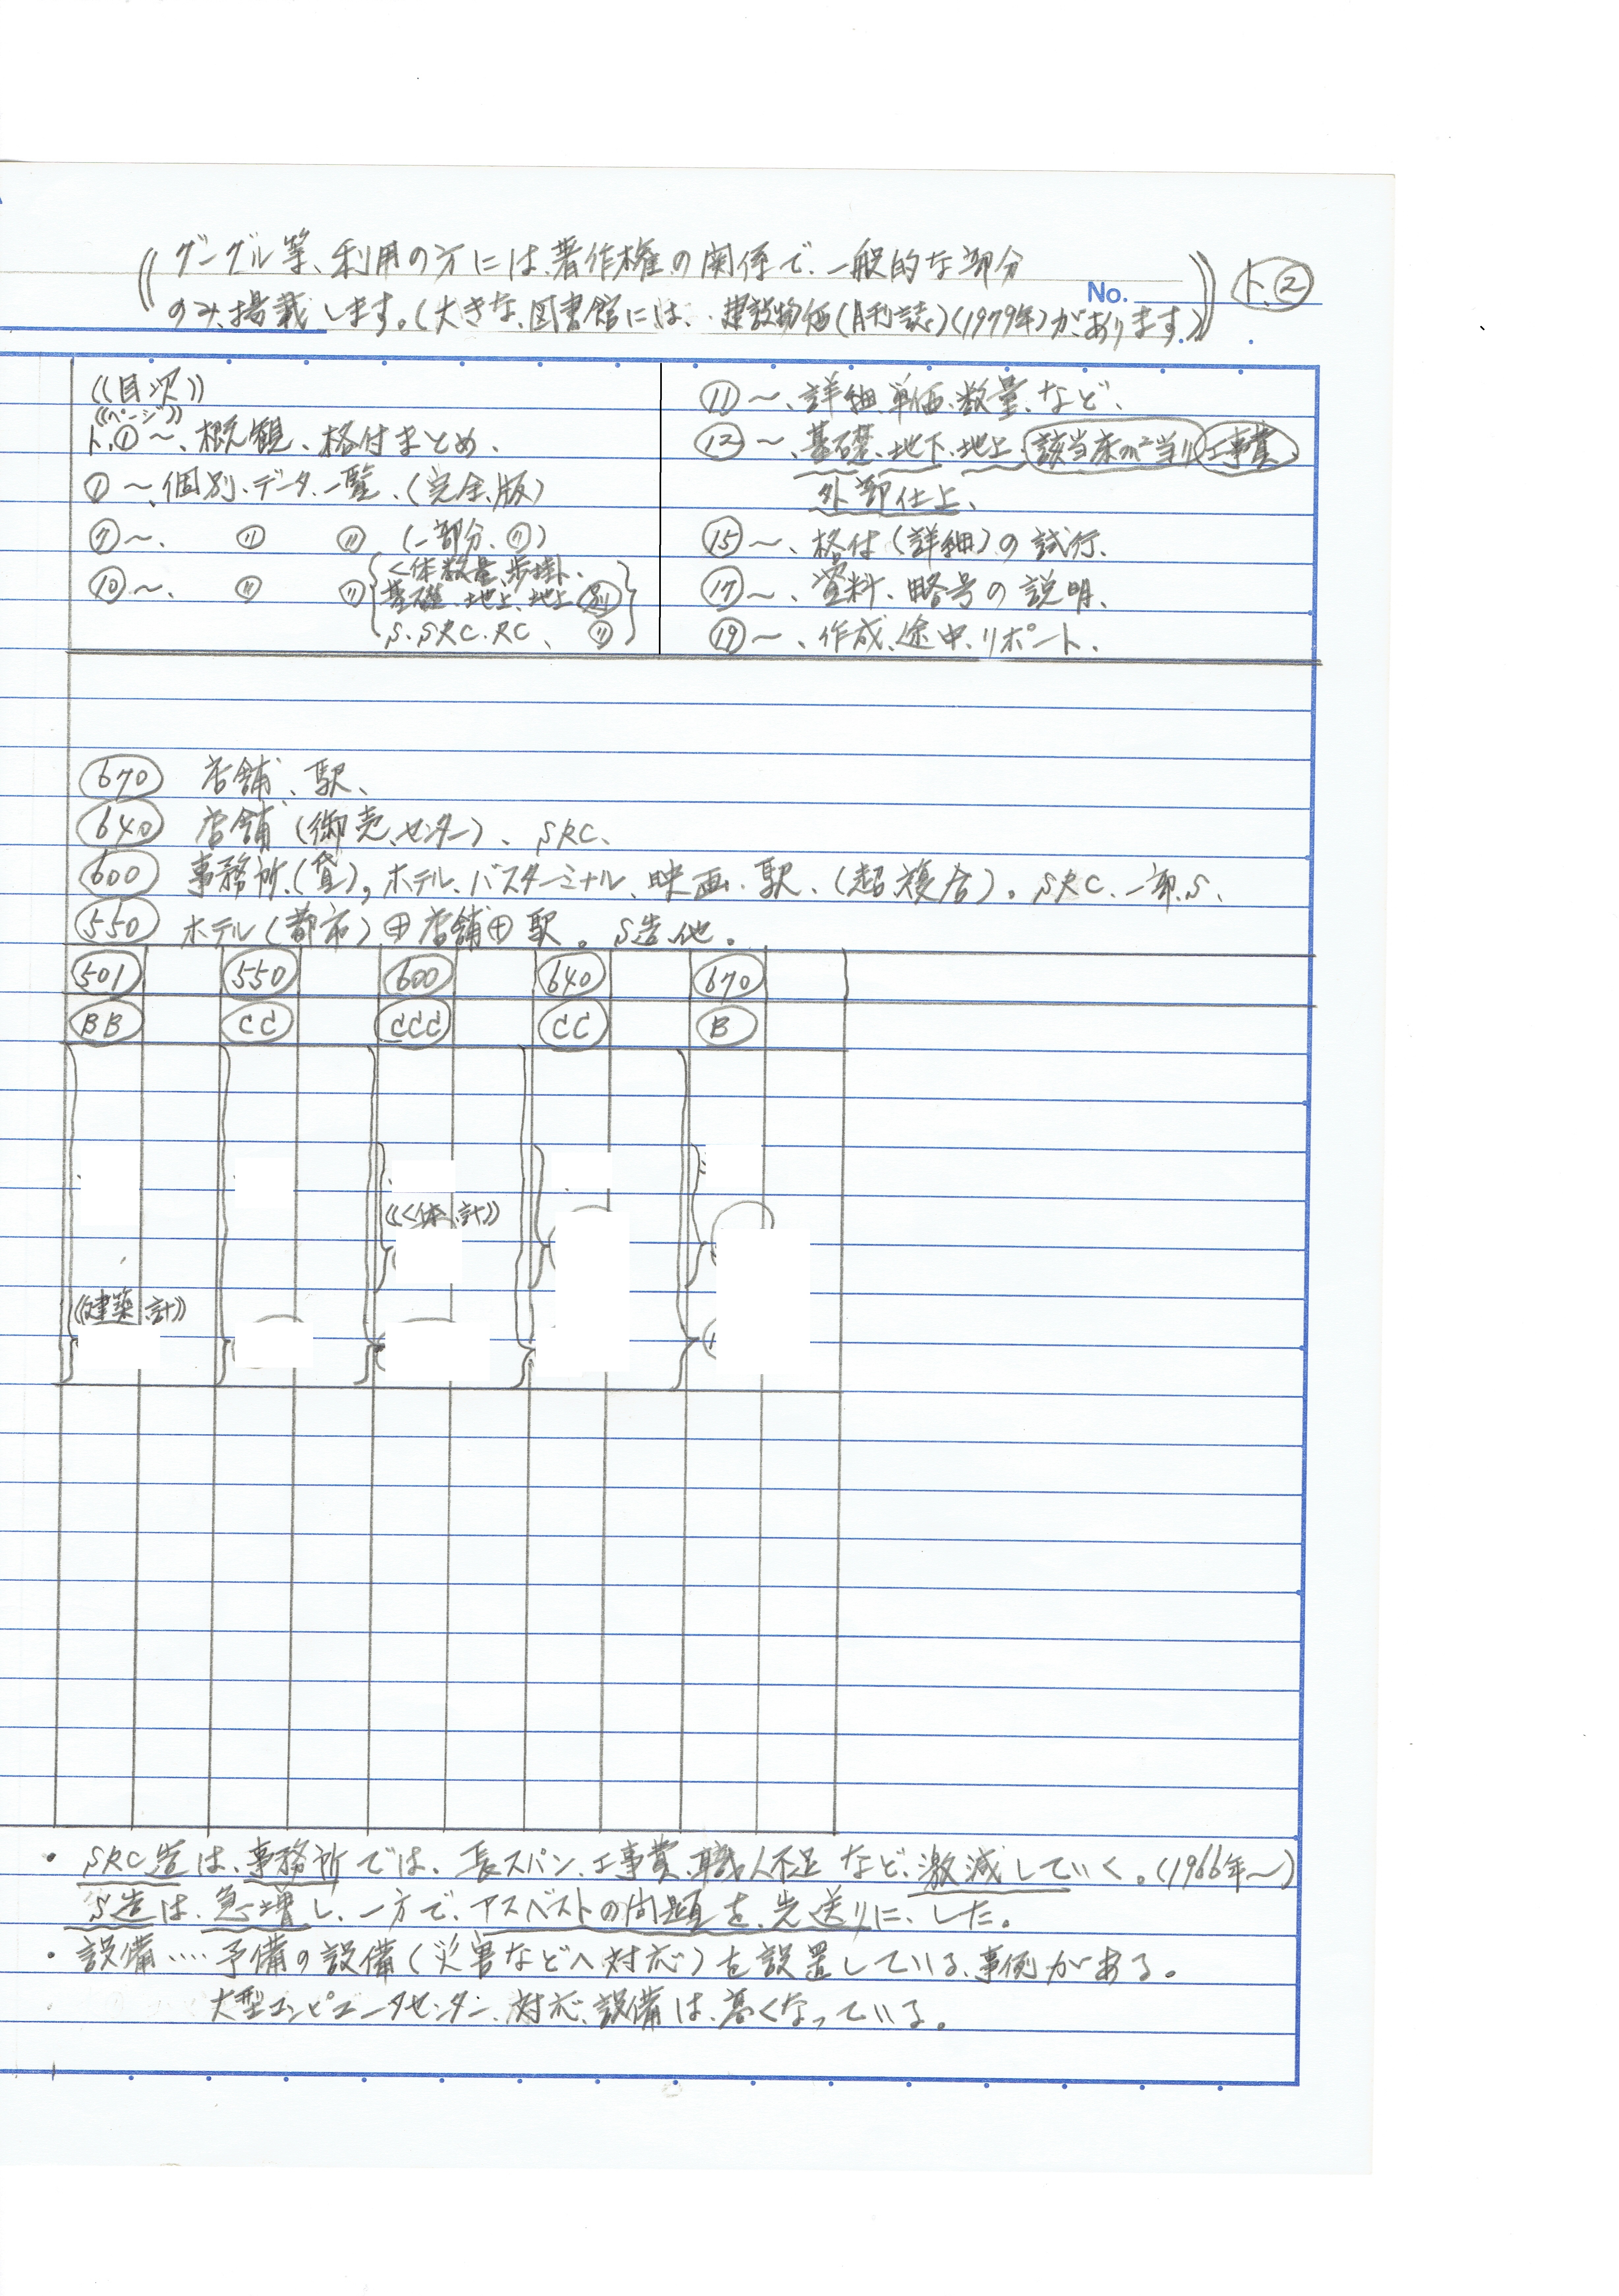 ((グーグル等、利用の方には、著作権の関係で、一般的な部分
のみ、掲載します。(大きな、図書館には、建設物価(月刊誌)(1979年)があります))
No.
ト.②
((目次))
((ページ))
ト.①〜、概観、格付まとめ、
①〜、個別、データ、一覧、(完全、版)
⑦〜、 〃 〃 (一部分、〃)
⑩〜、 〃 〃 {く体数量、歩掛、
基礎、地上、地上、別
S.SRC.RC、〃}
⑪〜、詳細、単価、数量、など、
⑫〜、基礎、地下、地上、該当床m²当り工事費、
外部仕上、
⑮〜、格付(詳細)の試行、
⑰〜、資料、略号の説明、
⑲〜、作成、途中、リポート、
670 店舗、駅、
640 店舗(御売、センター)、SRC、
600 事務所、(貸)、ホテル、バスターミナル、映画、駅、(超複合)。SRC、一部、S、
550 ホテル(都市)田店舗田駅。S造、他。
501 550 600 640 670
BB CC CCC CC B
((く体、計))
((建築、計))
・SRC造は、事務所では、長スパン、工事費、職人不足など、激減していく。(1966年〜)
S造は、急増し、一方で、アスベストの問題を、先送りに、した。
・設備……予備の設備(災害などへ、対応)を設置している、事例がある。
大型コンピュータセンター、対応、設備は、高くなっている。